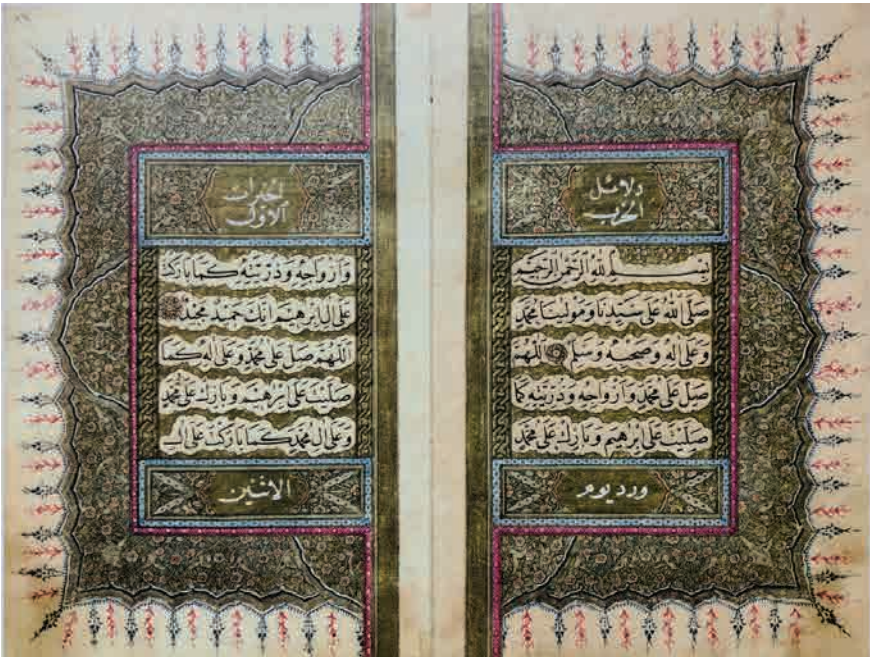 دلائل
الخيرات
بِسْمِ اللهِ الرَّحْمٰنِ الرَّحِيمِ
صَلَّى اللهُ عَلَى سَيِّدِنَا وَمَوْلَينَا مُحَمَّدٍ
وَعَلَى اٰلِهِ وَصَحْبِهِ وَسَلَّمَ اَللّٰهُمَّ
صَلِّ عَلَى مُحَمَّدٍ وَاَزْوَاجِهِ وَذُرِّيَّتِهِ كَمَا
صَلَّيْتَ عَلَى اِبْرٰهِيمَ وَبَارِكْ عَلَى مُحَمَّدٍ
ورد يوم
الحزب
الاول
وَاَزْوَاجِهِ وَذُرِّيَّتِهِ كَمَا بَارَكْتَ
عَلَى اٰلِ اِبْرٰهِيمَ اِنَّكَ حَمِيدٌ مَجِيدٌ
اَللّٰهُمَّ صَلِّ عَلَى مُحَمَّدٍ وَعَلَى اٰلِهِ كَمَا
صَلَّيْتَ عَلَى اِبْرٰهِيمَ وَبَارِكْ عَلَى مُحَمَّدٍ
وَعَلَى اٰلِ مُحَمَّدٍ كَمَا بَارَكْتَ عَلَى اٰلِ
الاثنين